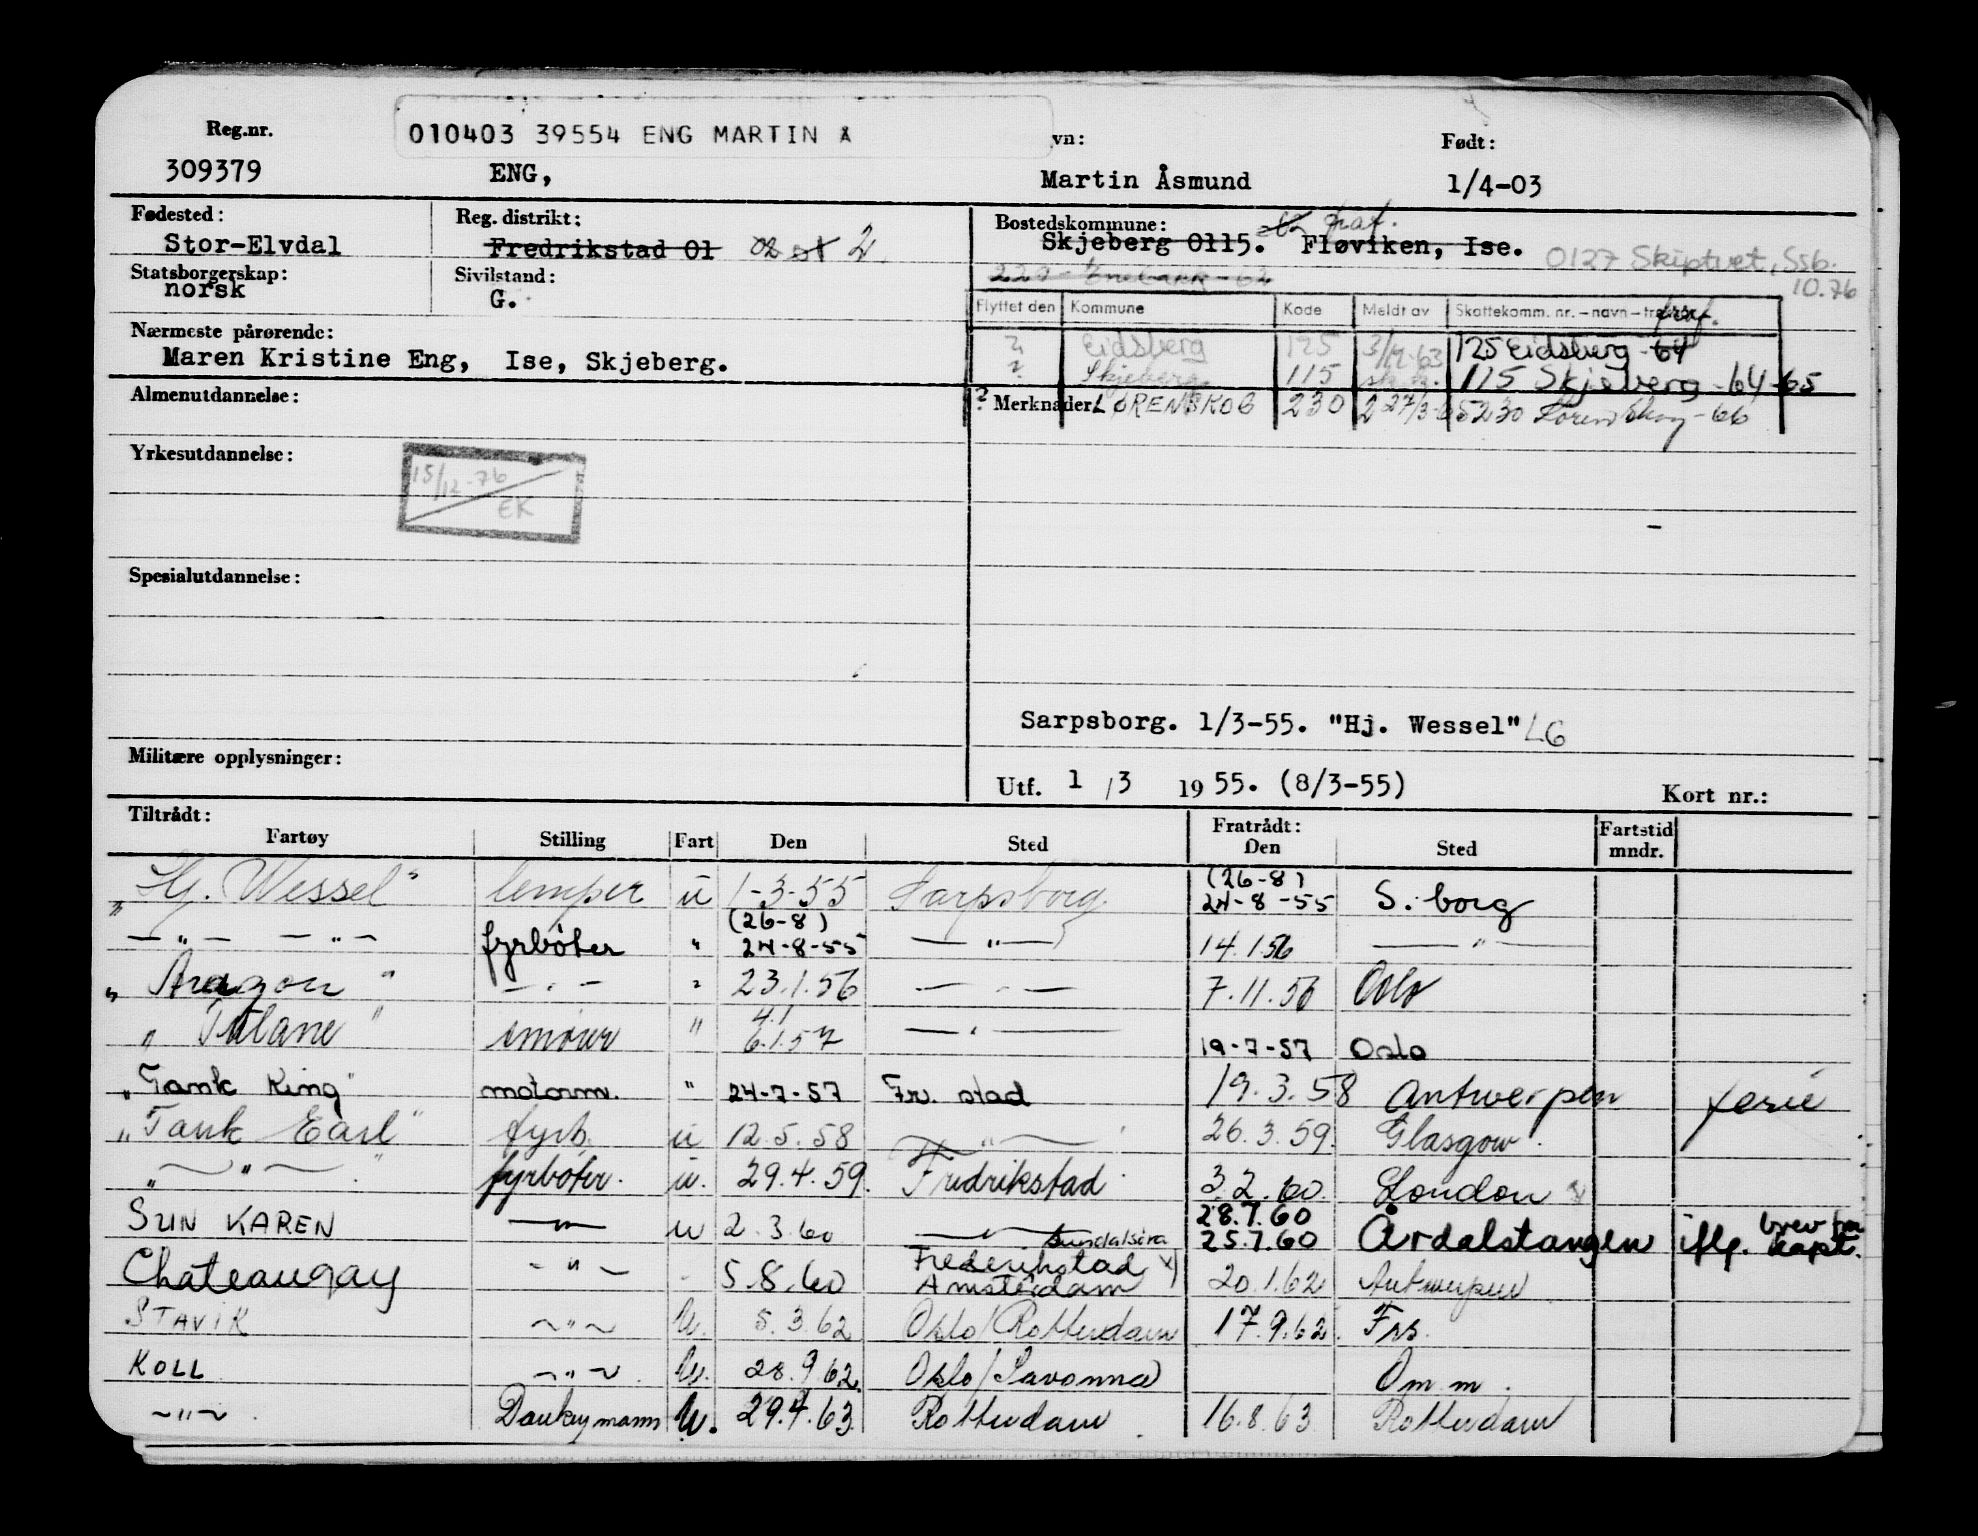 Reg.nr. 010403 39554 ENG MARTIN A vn: Født:
309379 ENG, Martin Åsmund 1/4-03
Fødested: Reg. distrikt: Bostedskommune: fraf.
Stor-Elvdal Fredrikstad 01 02 2. Skjeberg 0115. Fløviken, Ise. 0127 Skiptvet, Ssb. 10.76
Statsborgerskap: Sivilstand:
norsk G.
Flyttet den Kommune Kode Meldt av Skattekomm. nr. – navn –
Nærmeste pårørende: ? Eidsberg 125 3/12-63 125 Eidsberg - 64
Maren Kristine Eng, Ise, Skjeberg. ? Skjeberg 115 115 Skjeberg - 64-65
Almenutdannelse: ? Merknader LØRENSKOG 230 27/3-65 230 Lørenskog - 66
Yrkesutdannelse:
15/12-76
EK
Spesialutdannelse:
Sarpsborg. 1/3-55. "Hj. Wessel" LG
Militære opplysninger:
Utf. 1 / 3 19 55. (8/3-55) Kort nr.:
Tiltrådt: Fratrådt: Fartstid
Fartøy Stilling Fart Den Sted Den Sted mndr.
„Hj. Wessel" lemper u 1-3-55 Sarpsborg. (26-8) 24-8-55 S.borg
— " — — " — fyrbøter " (26-8) 24-8-55 — " — 14.1.56 — " —
„Aragon" — " — " 23.1.56 — " — 7.11.56 Oslo
„Tulane" smører " 4.1 6.1.57 — " — 19-7-57 Oslo
„Tank King" motorm. " 24-7-57 Fr. stad 19.3.58 Antwerpen ferie
„Tank Earl" fyrb. u 12.5.58 — " — 26.3.59. Glasgow.
„ — " — " fyrbøter. u. 29.4.59. Fredrikstad 3.2.60. London
SUN KAREN — " — u 2.3.60 — " — Sundalsöra 28.7.60 25.7.60 Årdalstangen iflg. brev fra kapt.
Chateaugay — " — 5.8.60 Frederikstad x) Amsterdam 20.1.62 Antwerpen
STAVIK — " — U. 5.3.62 Oslo/Rotterdam 17.9.62. Frs.
KOLL — " — U. 28.9.62. Oslo/Savonna Om m.
— " — Donkeymann U. 29.4.63. Rotterdam 16.8.63 Rotterdam